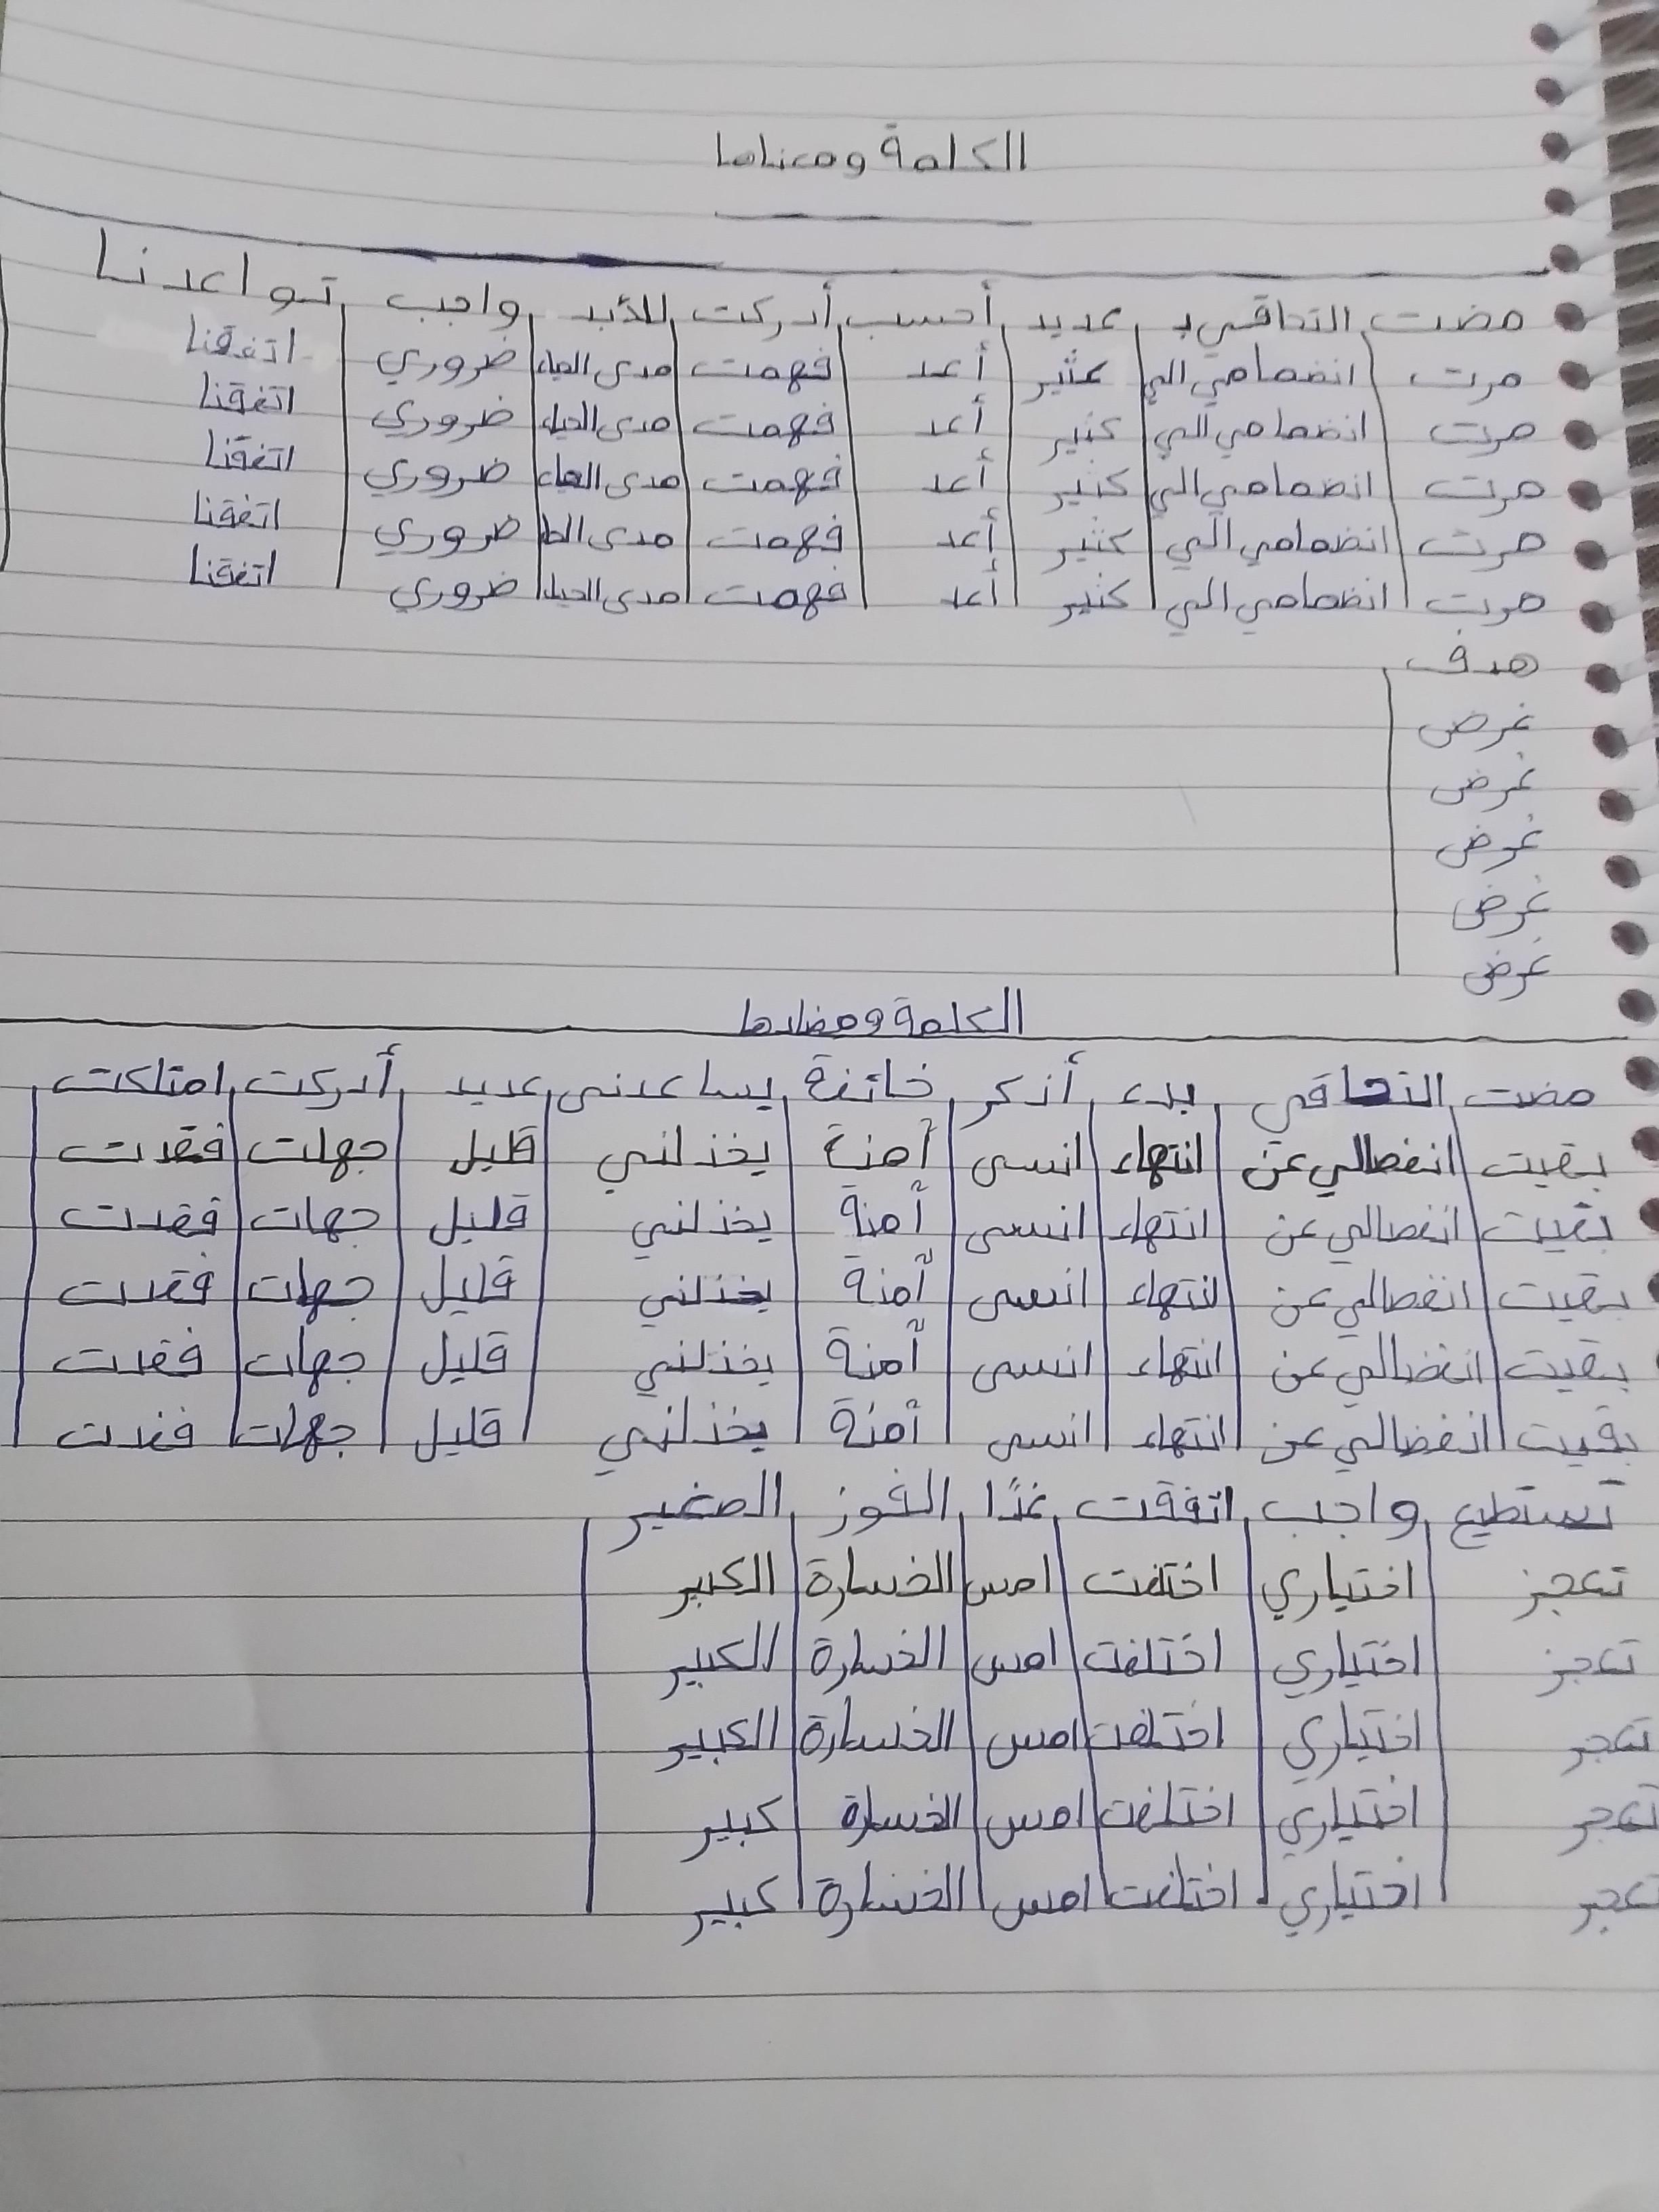 الكلمة ومعناها
مضت التحاقي بـ عديد أحسب أدركت للأبد واجب تواعدنا
مرت انضمامي الي كثير أعد فهمت مدى الحياة ضروري اتفقنا
مرت انضمامي الي كثير أعد فهمت مدى الحياة ضروري اتفقنا
مرت انضمامي الي كثير أعد فهمت مدى الحياة ضروري اتفقنا
مرت انضمامي الي كثير أعد فهمت مدى ضروري اتفقنا
مرت انضمامي الي كثير أعد فهمت مدى الحياة ضروري اتفقنا
هدف
غرض
غرض
غرض
غرض
غرض
الكلمة ومضادها
مضت التحاقي بدء أذكر خائفة يساعدني عديد أدركت امتلكت
بقيت انفصالي عن انتهاء انسى آمنة يخذلني قليل جهلت فقدت
بقيت انفصالي عن انتهاء انسى آمنة يخذلني قليل جهلت فقدت
بقيت انفصالي عن انتهاء انسى آمنة يخذلني قليل جهلت فقدت
بقيت انفصالي عن انتهاء انسى آمنة يخذلني قليل جهلت فقدت
بقيت انفصالي عن انتهاء انسى آمنة يخذلني قليل جهلت فقدت
تستطيع واجب اتفقت غدًا الفوز الصغير
تعجز اختياري اختلفت امس الخسارة الكبير
تعجز اختياري اختلفت امس الخسارة الكبير
تعجز اختياري اختلفت امس الخسارة الكبير
تعجز اختياري اختلفت امس الخسارة كبير
تعجز اختياري اختلفت امس الخسارة كبير